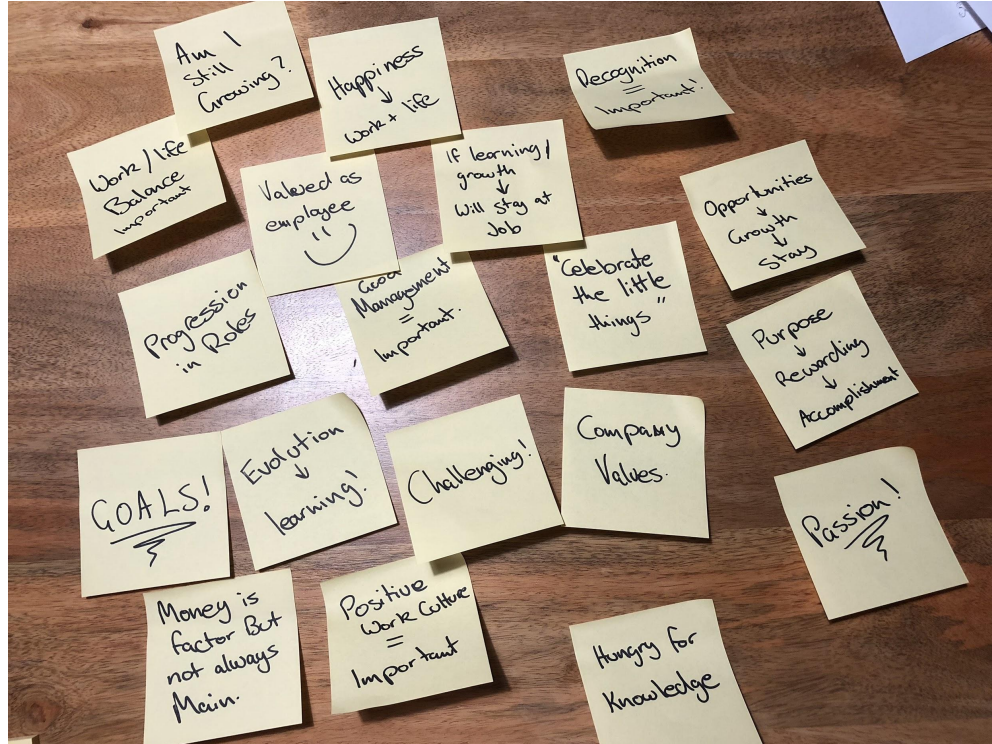 Am I
Still
Growing?
Happiness
↓
Work + life
Recognition
=
Important!
Work/life
Balance
Important
Valued as
employee
If learning/
growth
↓
Will stay at
Job
Opportunities
↓
Growth
↓
Stay
Progression
in Roles
Good
Management
=
Important.
"Celebrate
the little
things"
Purpose
↓
Rewarding
↓
Accomplishment
GOALS!
Evolution
↓
learning!
Challenging!
Company
Values.
Passion!
Money is
factor But
not always
Main.
Positive
Work Culture
=
Important
Hungry for
Knowledge